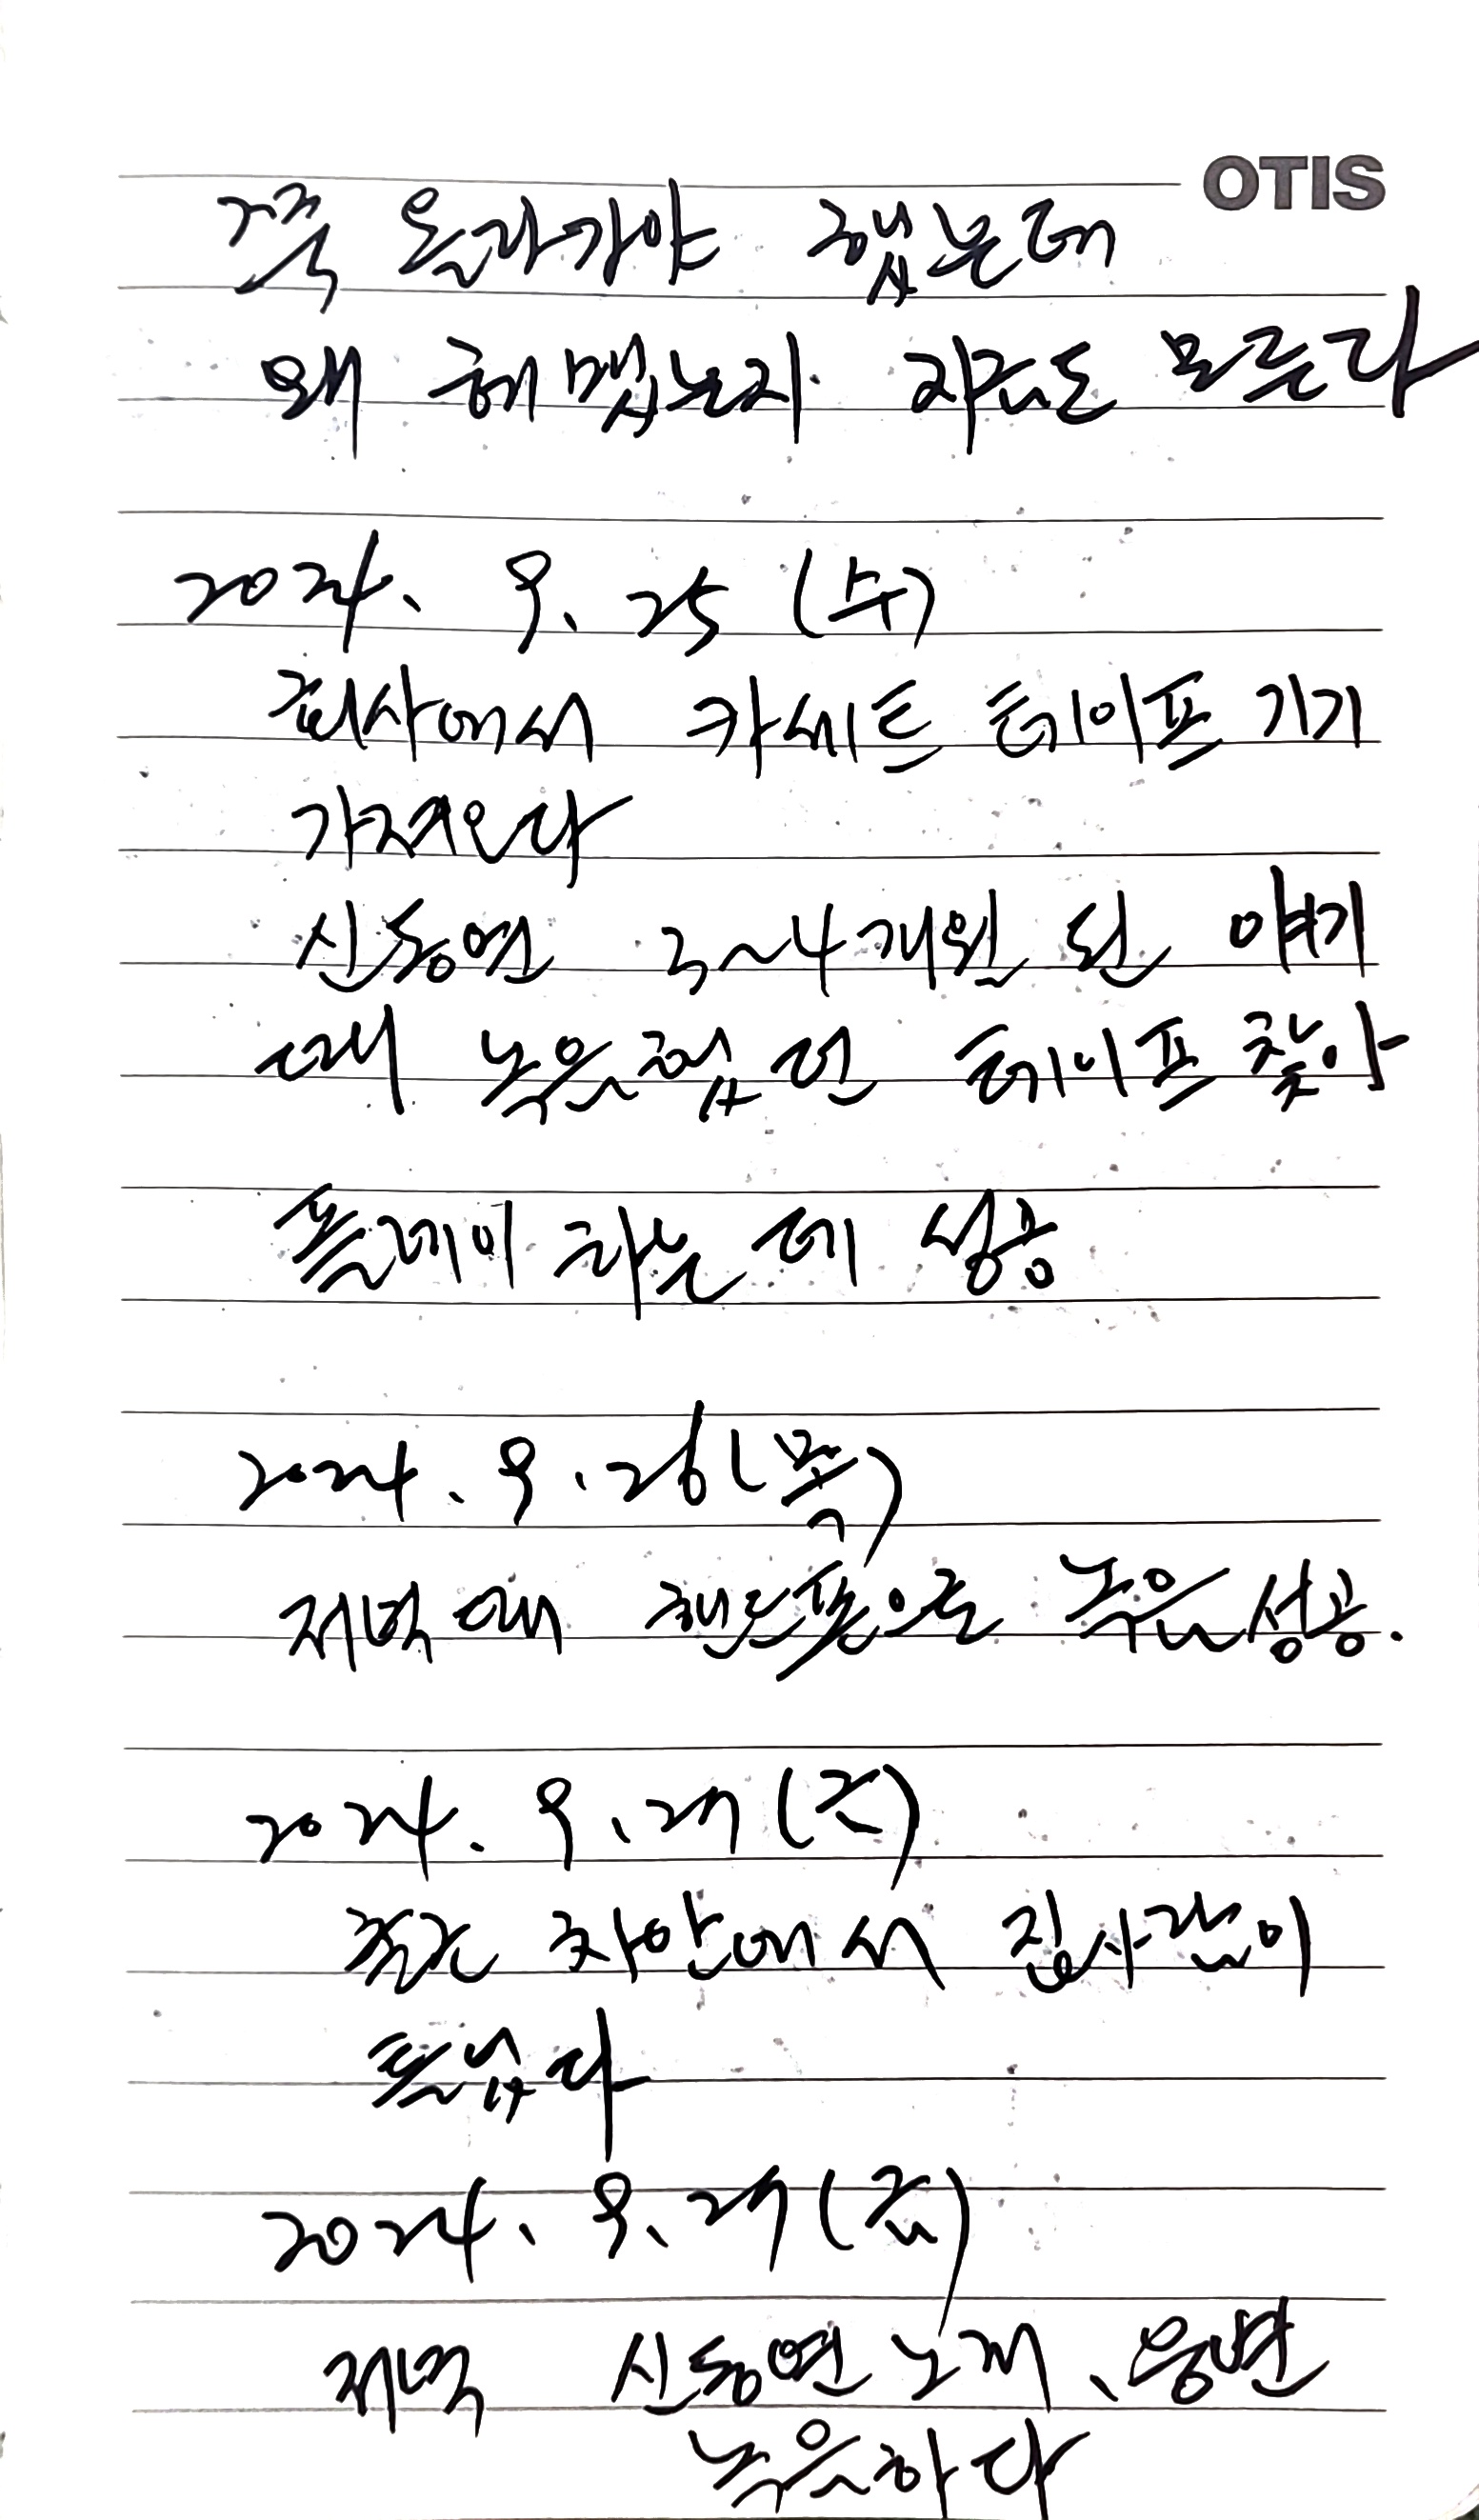 OTIS
쭉 올라가야 했는데
왜 헤맸는지 자신도 모른다
2024. 9. 25 (수)
회사에서 카세트 테이프 기기
가져온다
신동엽 3~4개월 된 아기
때 녹음했던 테이프 찾아
플레이 하는데 성공
2024. 9. 26 (목)
저녁때 핸드폰으로 녹음 성공.
2024. 9. 27 (금)
퇴근 차안에서 집사람이
틀었다
2024. 9. 27 (금)
저녁 신동엽 노래, 웅변
녹음하다